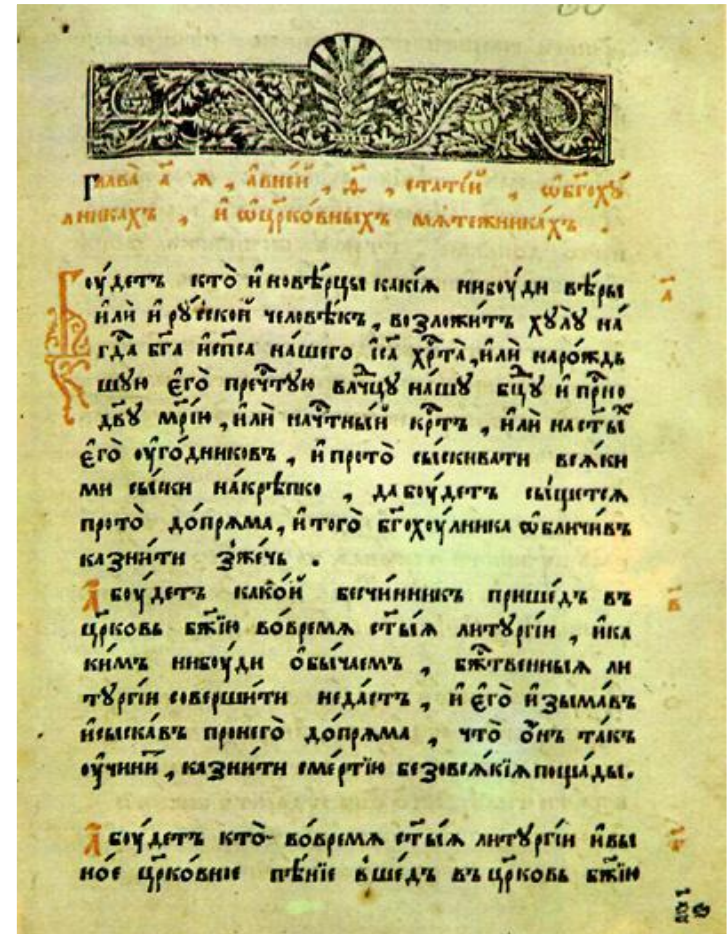 Глава а҃ я , авней , ѳ҃ , статей , ѡбг҃охꙋ
лникахъ , и ѡцр҃ковныхъ мѧтежникахъ .
Боу́детъ кто̀ и҆новѣ́рцы какі́ѧ нибоу́ди вѣ́ры
и҆лѝ и҆ рꙋ́сской человѣ́къ , возложи́тъ хꙋлꙋ̀ на́
гдⷭ҇а бг҃а и҆сп҃са на́шего і҆с҃а хрⷭ҇та̀ , и҆лѝ наро́ждь
шꙋю є҆го̀ пречⷭ҇тꙋю влⷣчцꙋ на́шꙋ бцⷣꙋ и҆ прⷭ҇но
дв҃ꙋ мр҃і́ю , и҆лѝ начⷭ҇тны́й крⷭ҇тъ , и҆лѝ наст҃ы́хъ
є҆го̀ оу҆го́дниковъ , и҆ прото̀ сы́скивати всѧ́ки
ми сы́ски на́крѣпко , дабоу́детъ сы́щетсѧ
прото̀ до́прѧма , и҆того̀ бг҃охоу́лника ѡ҆бличи́въ
казни́ти зже́чь .
А боу́детъ како́й бесчи́нникъ прише́дъ въ
цр҃ковь бж҃ію во́времѧ ст҃ы́ѧ литꙋргі́и , и҆ка
ки́мъ нибоу́ди ѻ҆бы́чаемъ , бжⷭ҇твенныѧ ли
тꙋргі́и соверши́ти неда́стъ , и҆ є҆го̀ и҆зыма́въ
и҆сыска́въ пронего̀ до́прѧма , что̀ ѻ҆́нъ та́къ
оу҆чини́тъ , казни́ти сме́ртію безовсѧ́кіѧ поща́ды .
А боу́детъ кто̀ во́времѧ ст҃ы́ѧ литꙋргі́и и҆вы
но́е цр҃ко́вное пѣ́ніе вше́дъ въ цр҃ковь бж҃ію
а҃
в҃
г҃